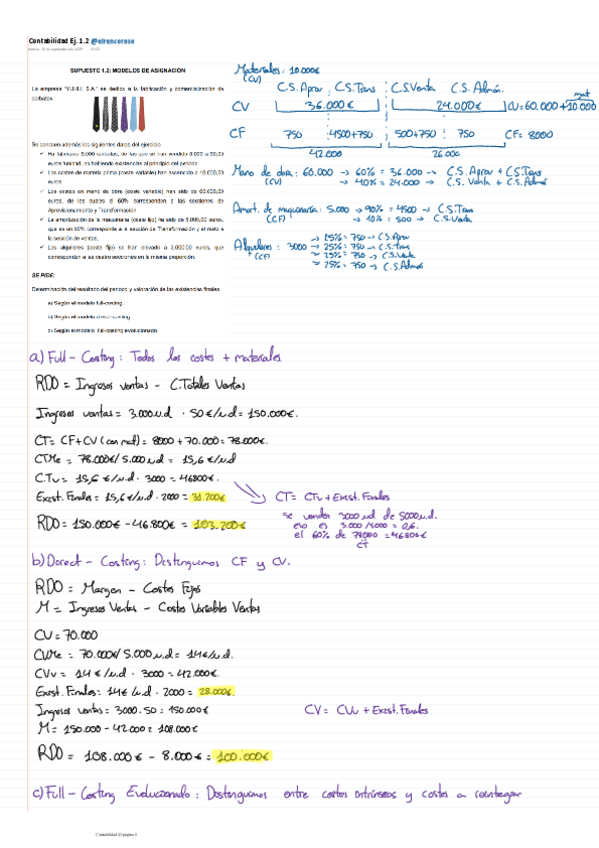 Contabilidad Ej. 1.2 @elrencoroso
SUPUESTO 1.2: MODELOS DE ASIGNACIÓN
La empresa S.A." se dedica a la fabricación y comercialización de
corbatas.
Se conocen además los siguientes datos del ejercicio
✓ Ha fabricado 5.000 corbatas, de las que se han vendido 3.000 a 50,00
euros/unidad, no habiendo existencias al principio del periodo.
✓ Los costes de materia prima (coste variable) han ascendido a 10.000,00
euros.
✓ Los costes en mano de obra (coste variable) han sido de 60.000,00
euros, de los cuales el 60% corresponden a las secciones de
Aprovisionamiento y Transformación
✓ La amortización de la maquinaria (coste fijo) ha sido de 5.000,00 euros,
que es un 90% corresponde a la sección de Transformación y el resto a
la sección de ventas.
✓ Los alquileres (coste fijo) se han elevado a 3.000,00 euros, que
corresponden a las cuatro secciones en la misma proporción.
SE PIDE:
Determinación del resultado del periodo y valoración de las existencias finales
a) Según el modelo full-costing.
b) Según el modelo direct-costing
c) Según el modelo full-costing evolucionado.
Materiales: 10.000€
(CV)
C.S.Aprov C.S.Trans C.S.Venta C.S. Admón.
CV 36.000€ 24.000€ CV=60.000+10.000
mat
CF 750 4500+750 500+750 750 CF= 8000
42.000 26.000
Mano de obra: 60.000 → 60% = 36.000 → C.S. Aprov + C.S.Trans
(CV) → 40% = 24.000 → C.S. Venta + C.S. Admó
Amort. de maquinaria: 5.000 → 90% = 4500 → C.S.Trans
(CF) → 10% = 500 → C.S.Venta
Alquileres: 3000 → 25% = 750 → C.S.Aprov
(CF) → 25% = 750 → C.S.Trans
→ 25% = 750 → C.S.Venta
→ 25% = 750 → C.S.Admón
a) Full-Costing: Todos los costes + materiales
RDO = Ingresos ventas - C.Totales Ventas
Ingresos ventas = 3.000 u.d · 50 €/u.d = 150.000€.
CT= CF+CV (con mat) = 8000 + 70.000 = 78.000€.
CTMe = 78.000€/5.000 u.d = 15,6 €/u.d
C.Tv = 15,6 €/u.d · 3000 = 46800€.
Exist. Finales = 15,6 €/u.d · 2000 = 31.200€
RDO = 150.000€ - 46.800€ = 103.200€
CT= CTv + Exist. Finales
se venden 3000 ud de 5000 u.d.
eso es 3.000/5000 = 0,6.
el 60% de 78000 = 46800€
CT
b) Direct-Costing: Distinguimos CF y CV.
RDO = Margen - Costes Fijos
M = Ingresos Ventas - Costes Variables Ventas
CV = 70.000
CVMe = 70.000€/5.000 u.d = 14€/u.d.
CVv = 14 €/u.d · 3000 = 42.000€.
Exist. Finales: 14€/u.d · 2000 = 28.000€.
Ingresos ventas = 3000 · 50 = 150.000€
M = 150.000 - 42.000 = 108.000€
CV = CVv + Exist. Finales
RDO = 108.000€ - 8.000€ = 100.000€
c) Full-Costing Evolucionado: Distinguimos entre costes intrínsecos y costes a reintegrar